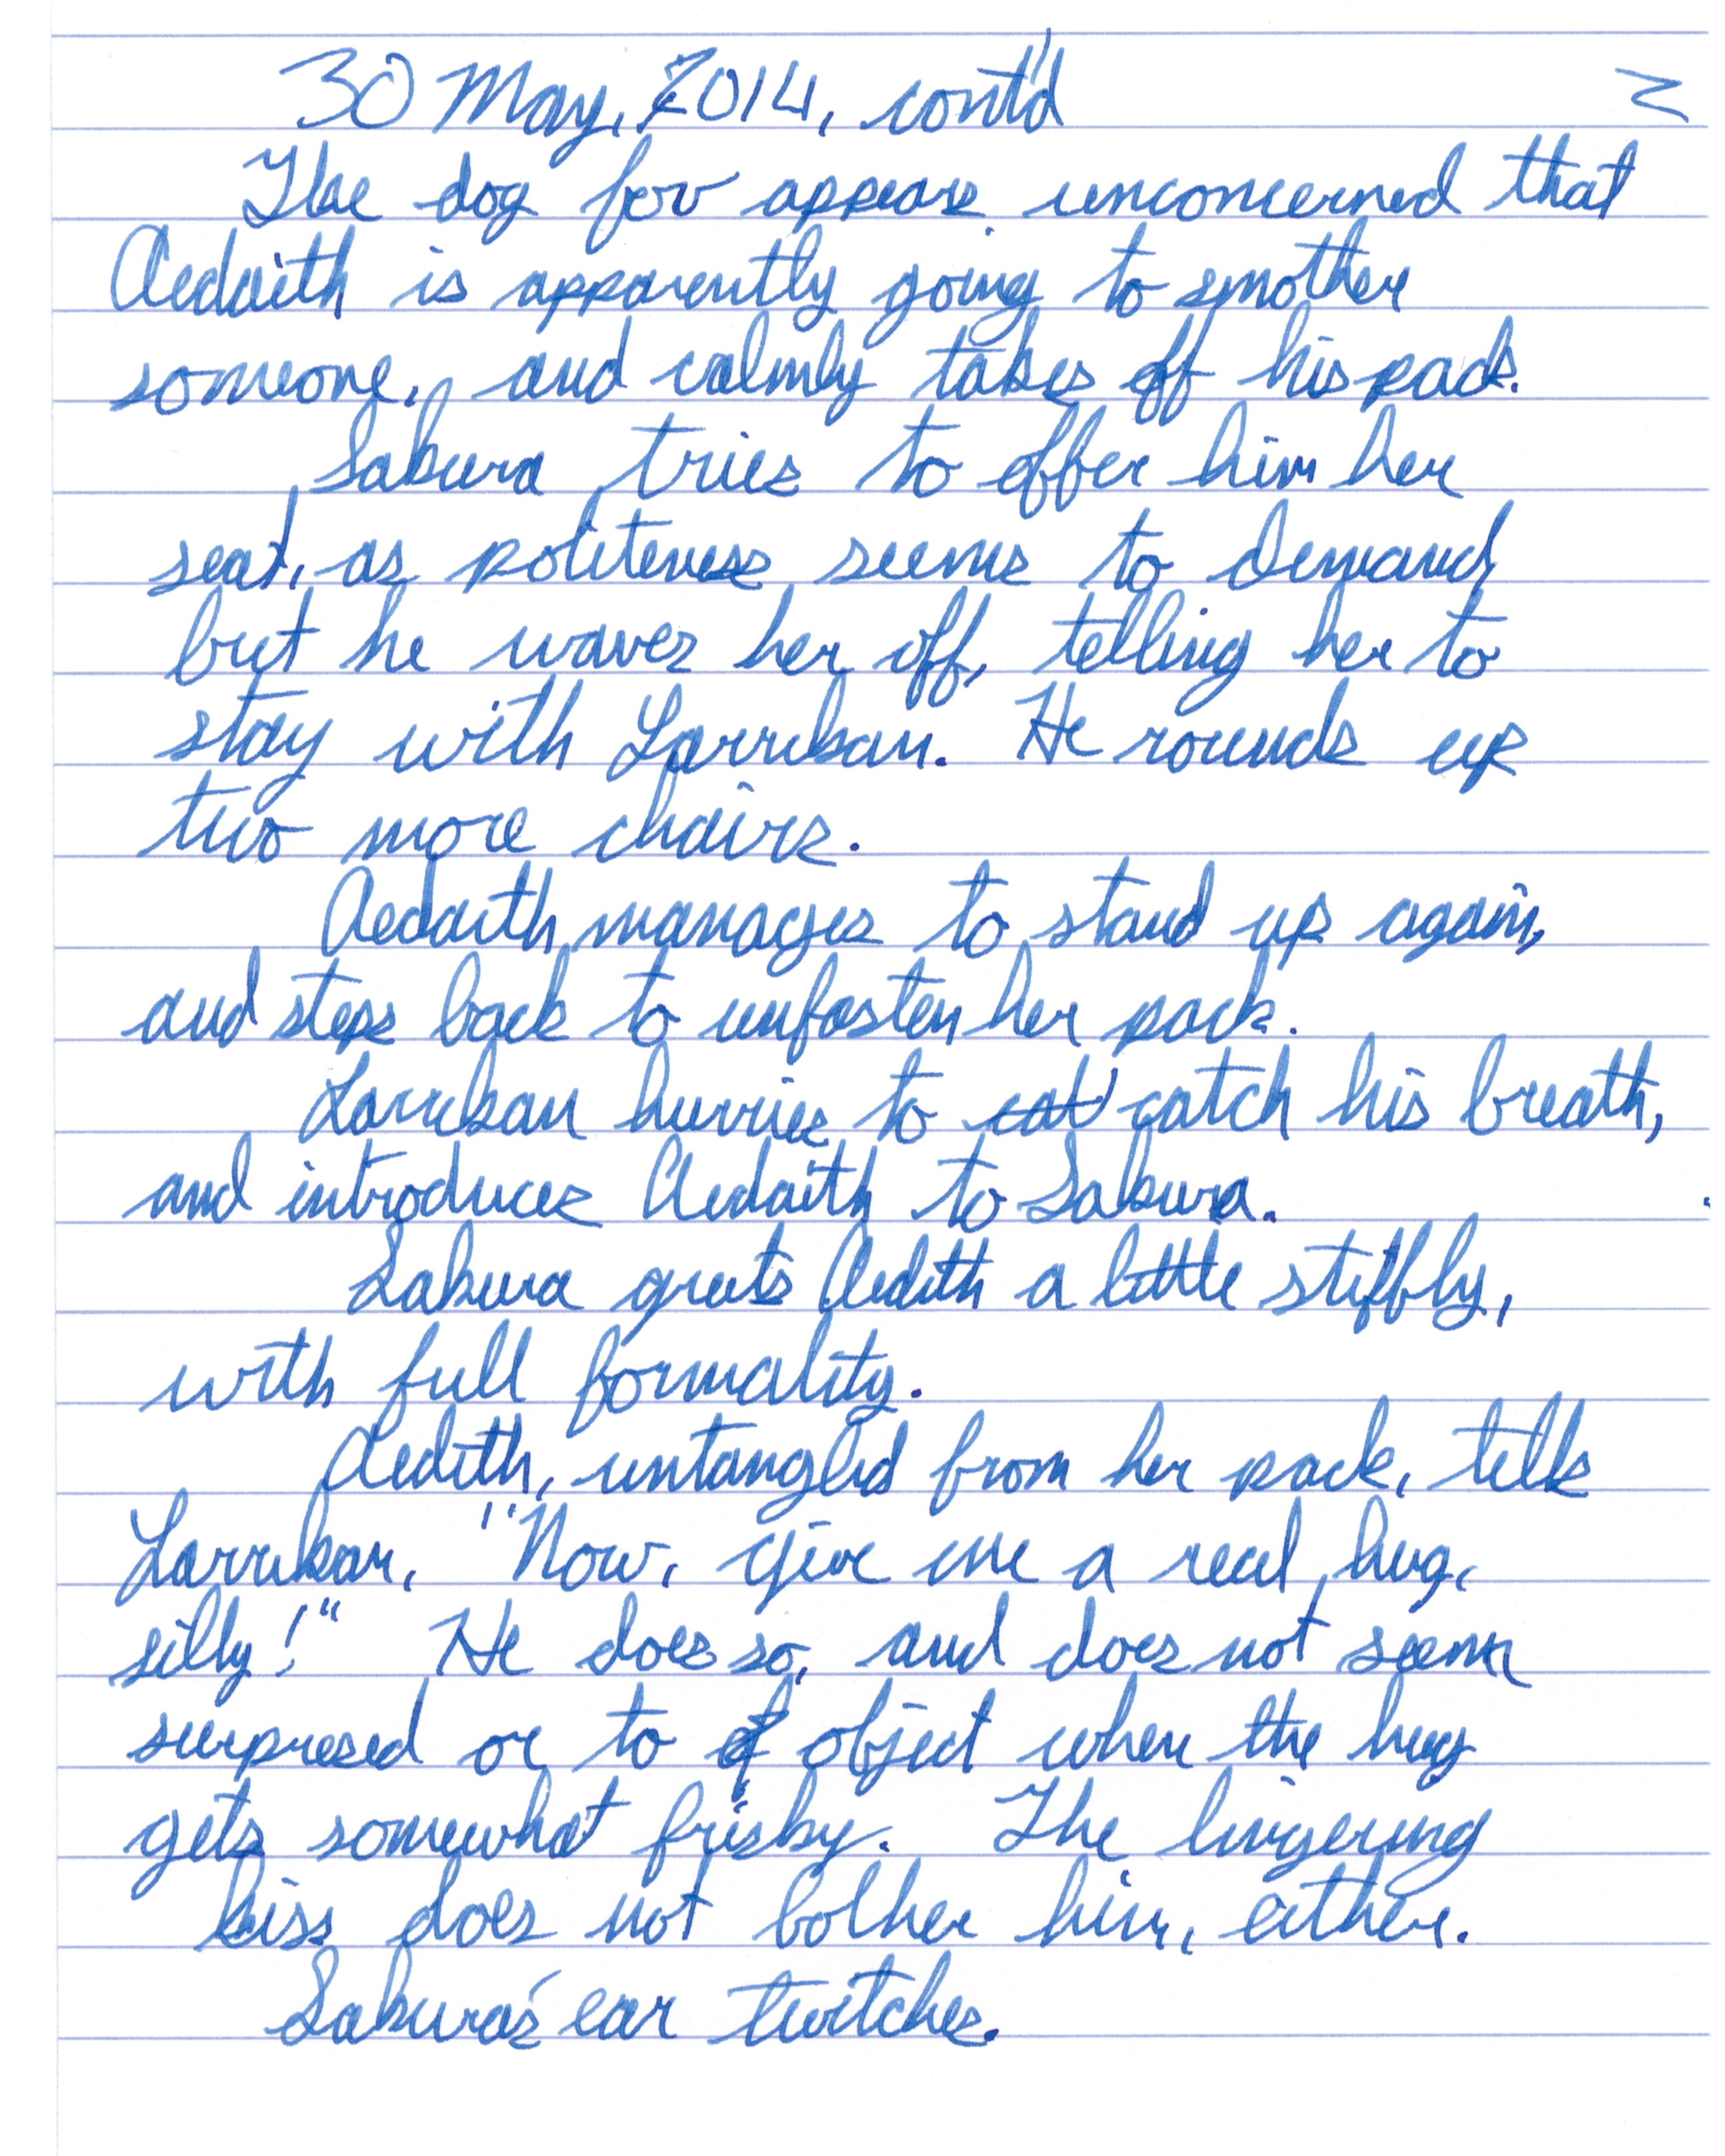 30 May, 2014, cont'd 2
The dog fov appears unconcerned that
Aedaith is apparently going to smother
someone, and calmly takes off his pack.
Sakura tries to offer him her
seat, as politeness seems to demand,
but he waves her off, telling her to
stay with Larrikan. He rounds up
two more chairs.
Aedaith manages to stand up again,
and steps back to unfasten her pack.
Larrikan hurries to cat catch his breath,
and introduces Aedaith to Sakura.
Sakura greets Aedith a little stiffly,
with full formality.
Aedith, untangled from her pack, tells
Larrikan, "Now, give me a real hug,
silly!" He does so, and does not seem
surprised or to of object when the hug
gets somewhat frisky. The lingering
kiss does not bother him, either.
Sakura's ear twitches.